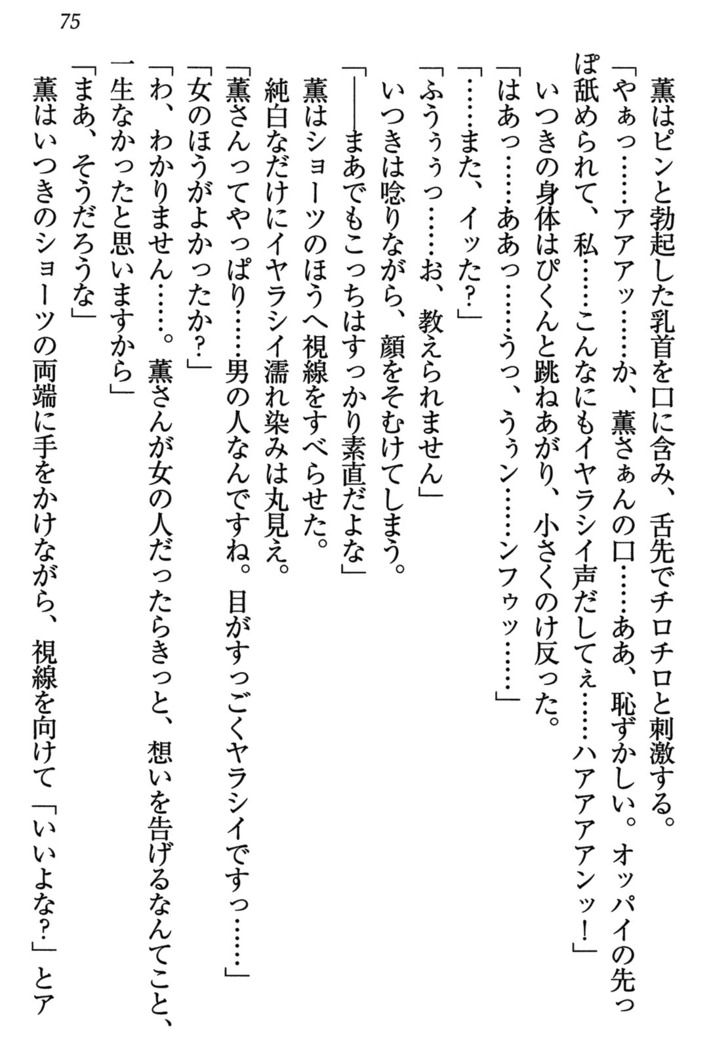 75
薫はピンと勃起した乳首を口に含み、舌先でチロチロと刺激する。
「やぁっ……アアアッ……か、薫さぁんの口……ああ、恥ずかしい。オッパイの先っ
ぽ舐められて、私……こんなにもイヤラシイ声だしてぇ……ハアアアアンッ！」
いつきの身体はぴくんと跳ねあがり、小さくのけ反った。
「はあっ……ああっ……うっ、うぅン……ンフゥッ……」
「……また、イッた？」
「ふうぅぅっ……お、教えられません」
いつきは唸りながら、顔をそむけてしまう。
「――まあでもこっちはすっかり素直だよな」
薫はショーツのほうへ視線をすべらせた。
純白なだけにイヤラシイ濡れ染みは丸見え。
「薫さんってやっぱり……男の人なんですね。目がすっごくヤラシイですっ……」
「女のほうがよかったか？」
「わ、わかりません……。薫さんが女の人だったらきっと、想いを告げるなんてこと、
一生なかったと思いますから」
「まあ、そうだろうな」
薫はいつきのショーツの両端に手をかけながら、視線を向けて「いいよな？」とア